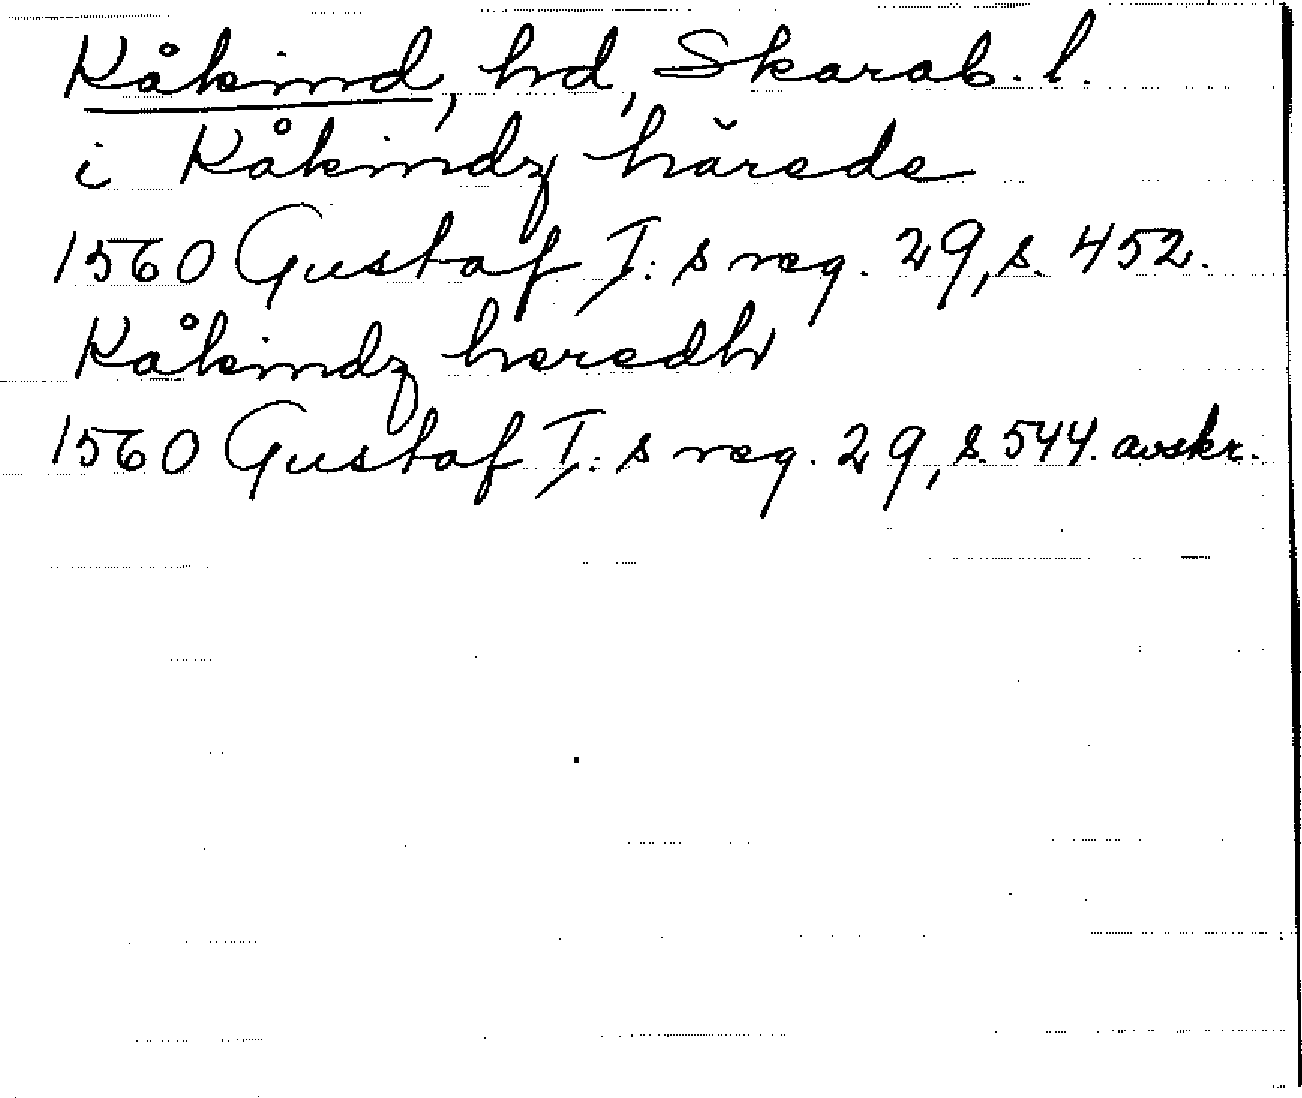 Kåkind, hd, Skarab. l.
i Kåkindz härede
1560 Gustaf I:s reg. 29, s. 452.
Kåkindz heredh
1560 Gustaf I:s reg. 29, s. 544. avskr.